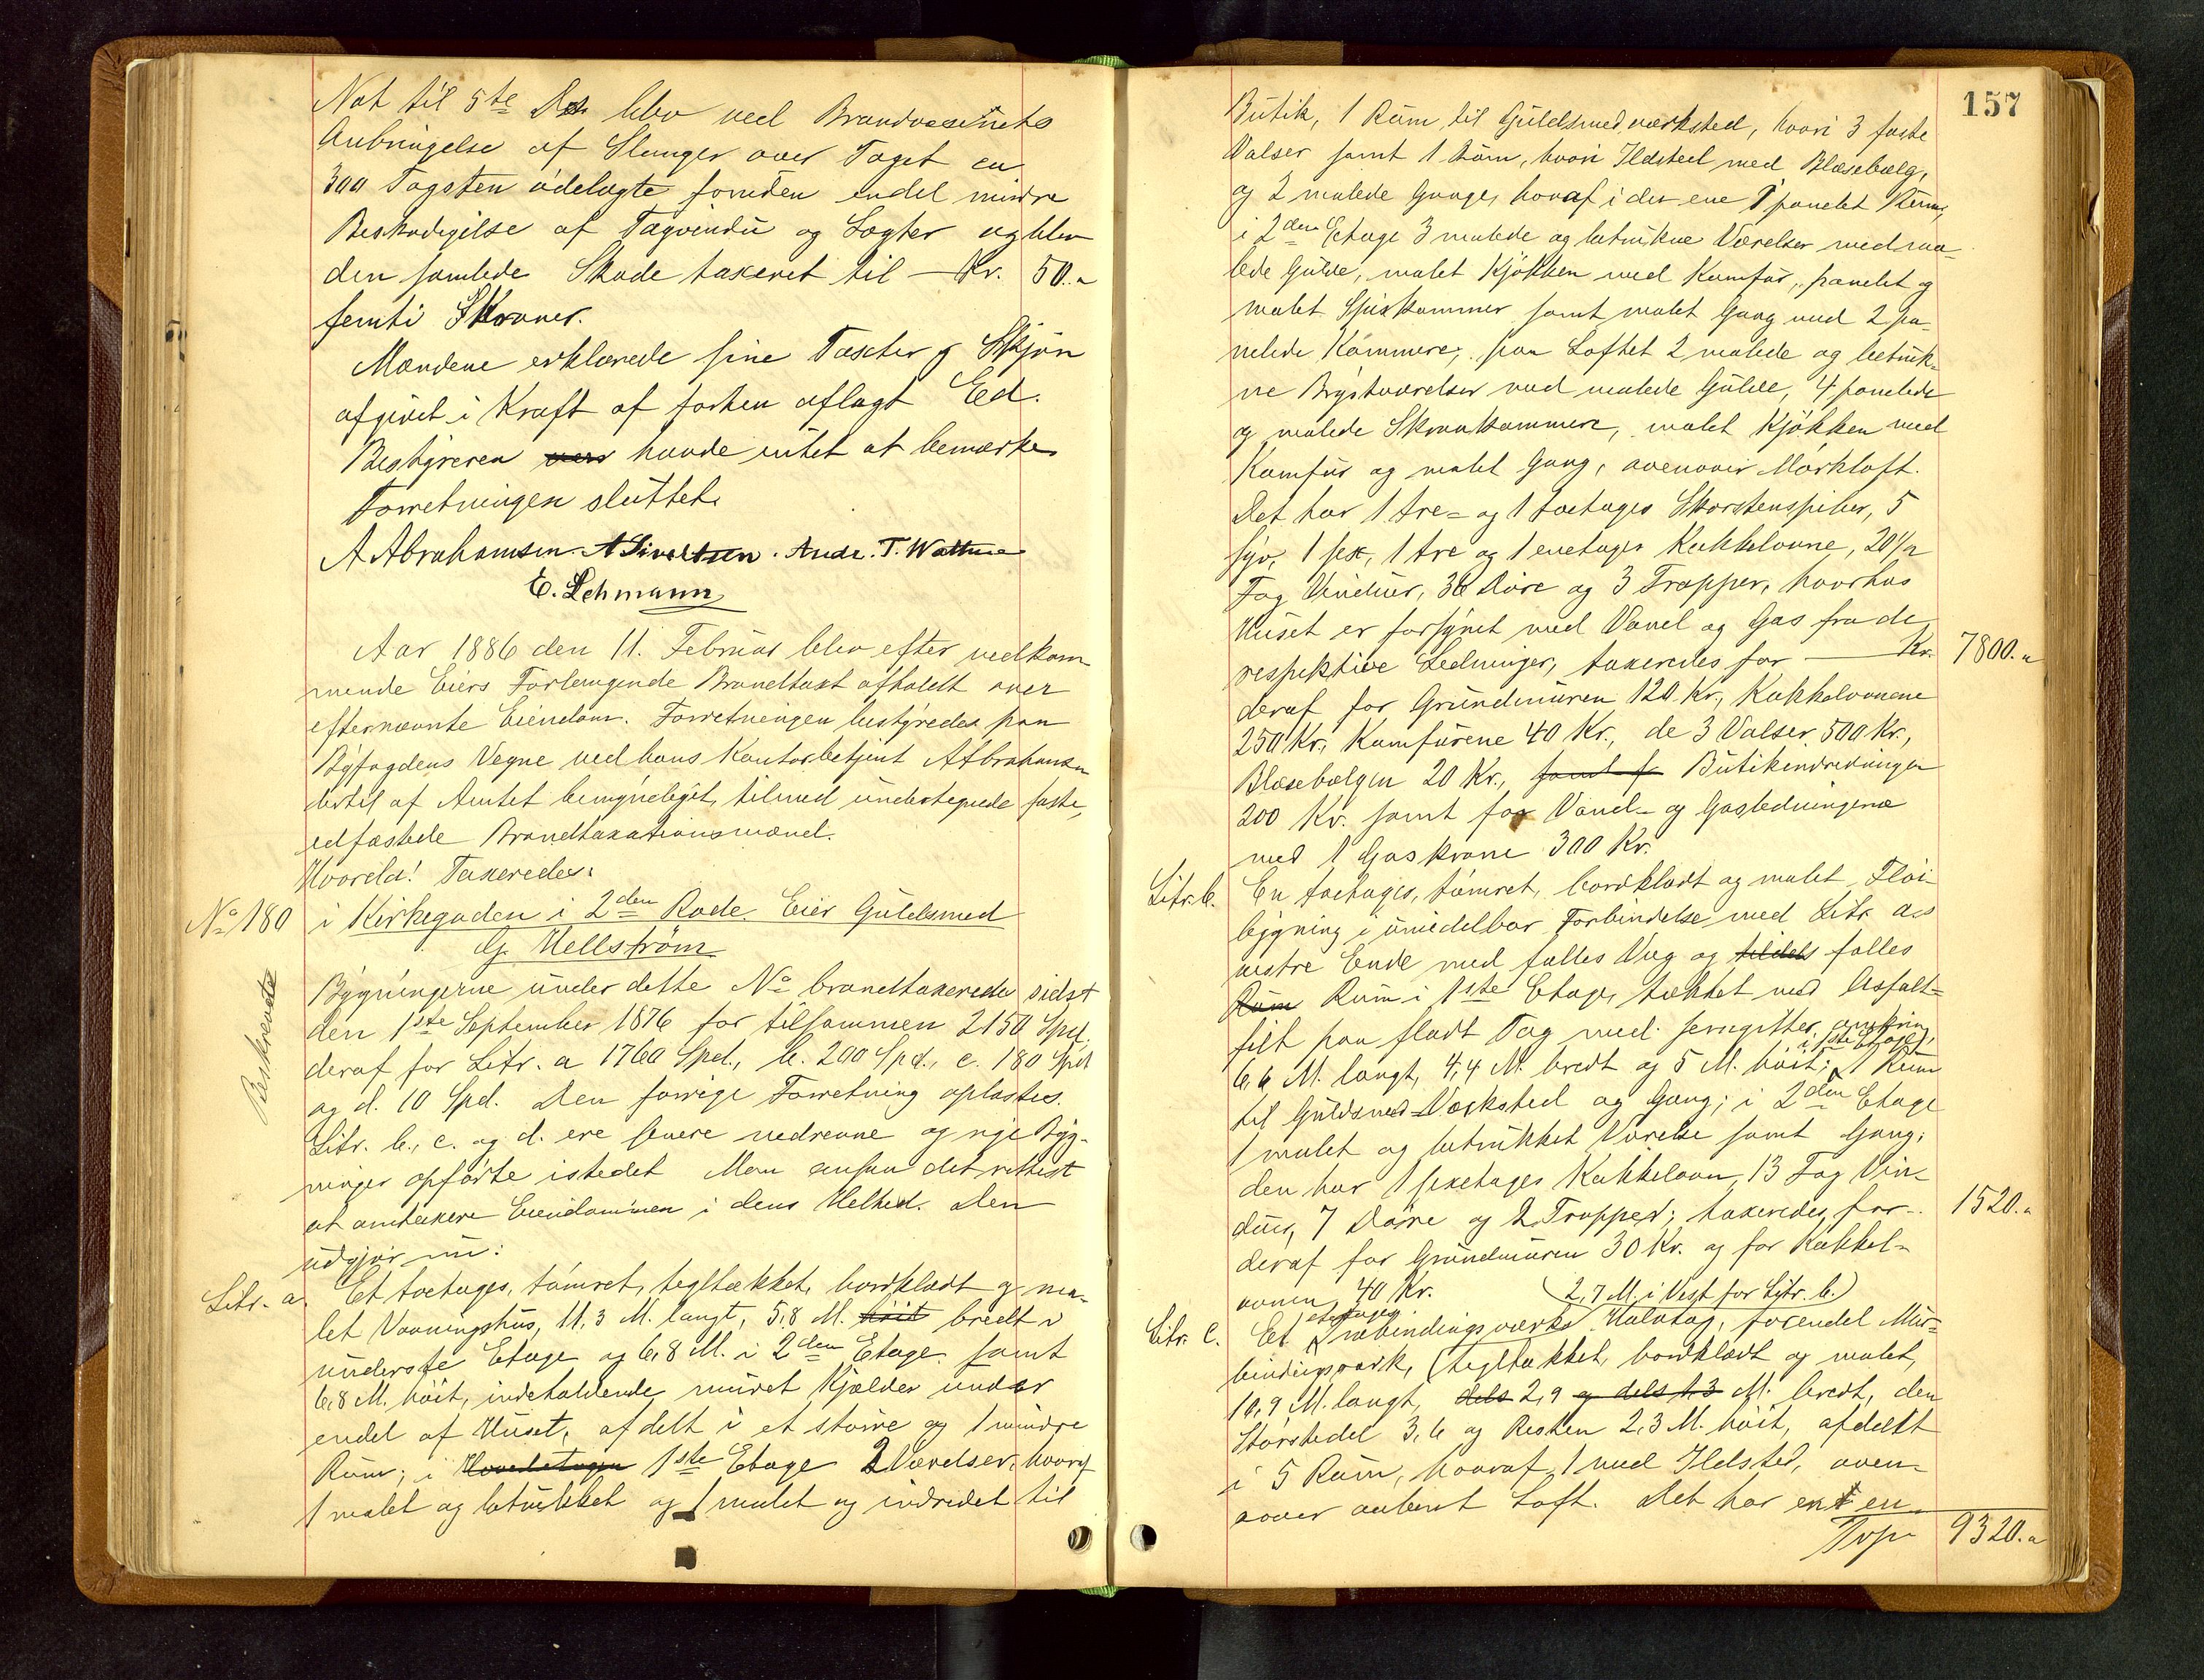 Nat til 5te Ds. blev ved Brandvæsenets
Anbringelse af Slanger over Taget ca
300 Tagsten ödelagte foruden endel mindre
Beskadigelse af Tagvindu og Lægter og blev
den samlede Skade taxeret til — Kr. 50.„
femti Kroner.
Mændene erklærede sine Taxter og Skjön
afgivet i Kraft af forhen aflagt Ed.
Bestyreren havde intet at bemærke
Forretningen sluttet.
A Abrahamsen. A Sivertsen. Andr. T. Wathne
E. Lehmann
Aar 1886 den 11. Februar blev efter vedkom-
mende Eiers Forlangende Brandtaxt afholdt over
efternævnte Eiendom. Forretningen bestyredes paa
Byfogdens Vegne ved hans Kontorbetjent A Abrahamsen
dertil af Amtet bemyndiget, tilmed undertegnede faste,
edfæstede Brandtaxationsmænd.
Hvorda! Taxeredes:
No 180 i Kirkegaden i 2den Rode. Eier Guldsmed
G. Hellström
Beskrevet
Bygningerne under dette No brandtaxeredes sidst
den 1ste September 1876 for tilsammen 2150 Spd.
deraf for Litr. a 1760 Spd., b. 200 Spd., c. 180 Spd
og d. 10 Spd. Den forrige Forretning oplæstes.
Litr. b., c. og d. ere senere nedrevne og nye Byg-
ninger opförte istedet. Man ansaa det rettest
at omtaxere Eiendommen i dens Helhed. Den
udgjör nu:
Litr. a. Et toetages, tömret, tegltækket, bordklædt og ma-
let Vaaningshus, 11,3 M. langt, 5,8 M. höit bredt i
underste Etage og 6,8 M. i 2den Etage samt
6,8 M. höit, indeholdende muret Kjælder under
endel af Huset, afdelt i et större og 1 mindre
Rum; i Hovedetagen 1ste Etage 2 Værelser, hvoraf
1 malet og betrukket og 1 malet og indredet til
157
Butik, 1 Rum til Guldsmedværksted, hvori 3 faste
Valser samt 1 Rum, hvori Ildsted med Blæsebælg,
og 2 malede Gange, hvoraf i den ene 1 panelet Rum,
i 2den Etage 3 malede og betrukne Værelser med ma-
lede Gulve, malet Kjökken med Komfur, panelet og
malet Spiskammer samt malet Gang med 2 pa-
nelede Kammere; paa Loftet 2 malede og betruk-
ne Brystværelser med malede Gulve, 4 panelede
og malede Skraakammere, malet Kjökken med
Komfur og malet Gang, ovenover Mörkloft.
Det har 1 tre- og 1 toetages Skorstenspiber, 5
syv, 1 sex, 1 tre og 1 enetages Kakkelovne, 20½
Fag Vinduer, 30 Döre og 3 Trapper, hvorhos
Huset er forsynet med Vand og Gas fra de
respektive Ledninger; taxeredes for — Kr. 7800.„
deraf for Grundmuren 120 Kr., Kakkelovnene
250 Kr., Komfurene 40 Kr., de 3 Valser 500 Kr.,
Blæsebælgen 20 Kr., samt f Butikindredningen
200 Kr. samt for Vand- og Gasledningerne
med 1 Gaskrone 300 Kr.
Litr. b. En toetages, tömret, bordklædt og malet Flöi-
bygning i umiddelbar Forbindelse med Litr. a.s
vestre Ende med fælles Væg og tildels fælles
Rum Rum i 1ste Etage, tækket med Asfalt-
filt paa fladt Tag med Jerngitter omkring,
6,6 M. langt, 4,4 M. bredt og 5 M. höit; i 1ste Etage, 1 Rum
til Guldsmed-Værksted og Gang; i 2den Etage
1 malet og betrukket Værelse samt Gang;
den har 1 sexetages Kakkelovn, 13 Fag Vin-
duer, 7 Döre og 2 Trapper; taxeredes for.. 1520.„
deraf for Grundmuren 30 Kr. og for Kakkel-
ovnen 40 Kr. (2,7 M. i Vest for Litr. b.)
Litr. C. Et etages Træbindingsværks Halvtag, forendel Mur-
bindingsværk, (tegltækket, bordklædt og malet,
10,9 M. langt, dels 2,9 og dels 1,3 M. bredt, den
Störstedel 3,6 og Resten 2,3 M. höit, afdelt
i 5 Rum, hvoraf 1 med Ildsted, oven-
over aabent Loft. Det har en en
Trsp 9320.„